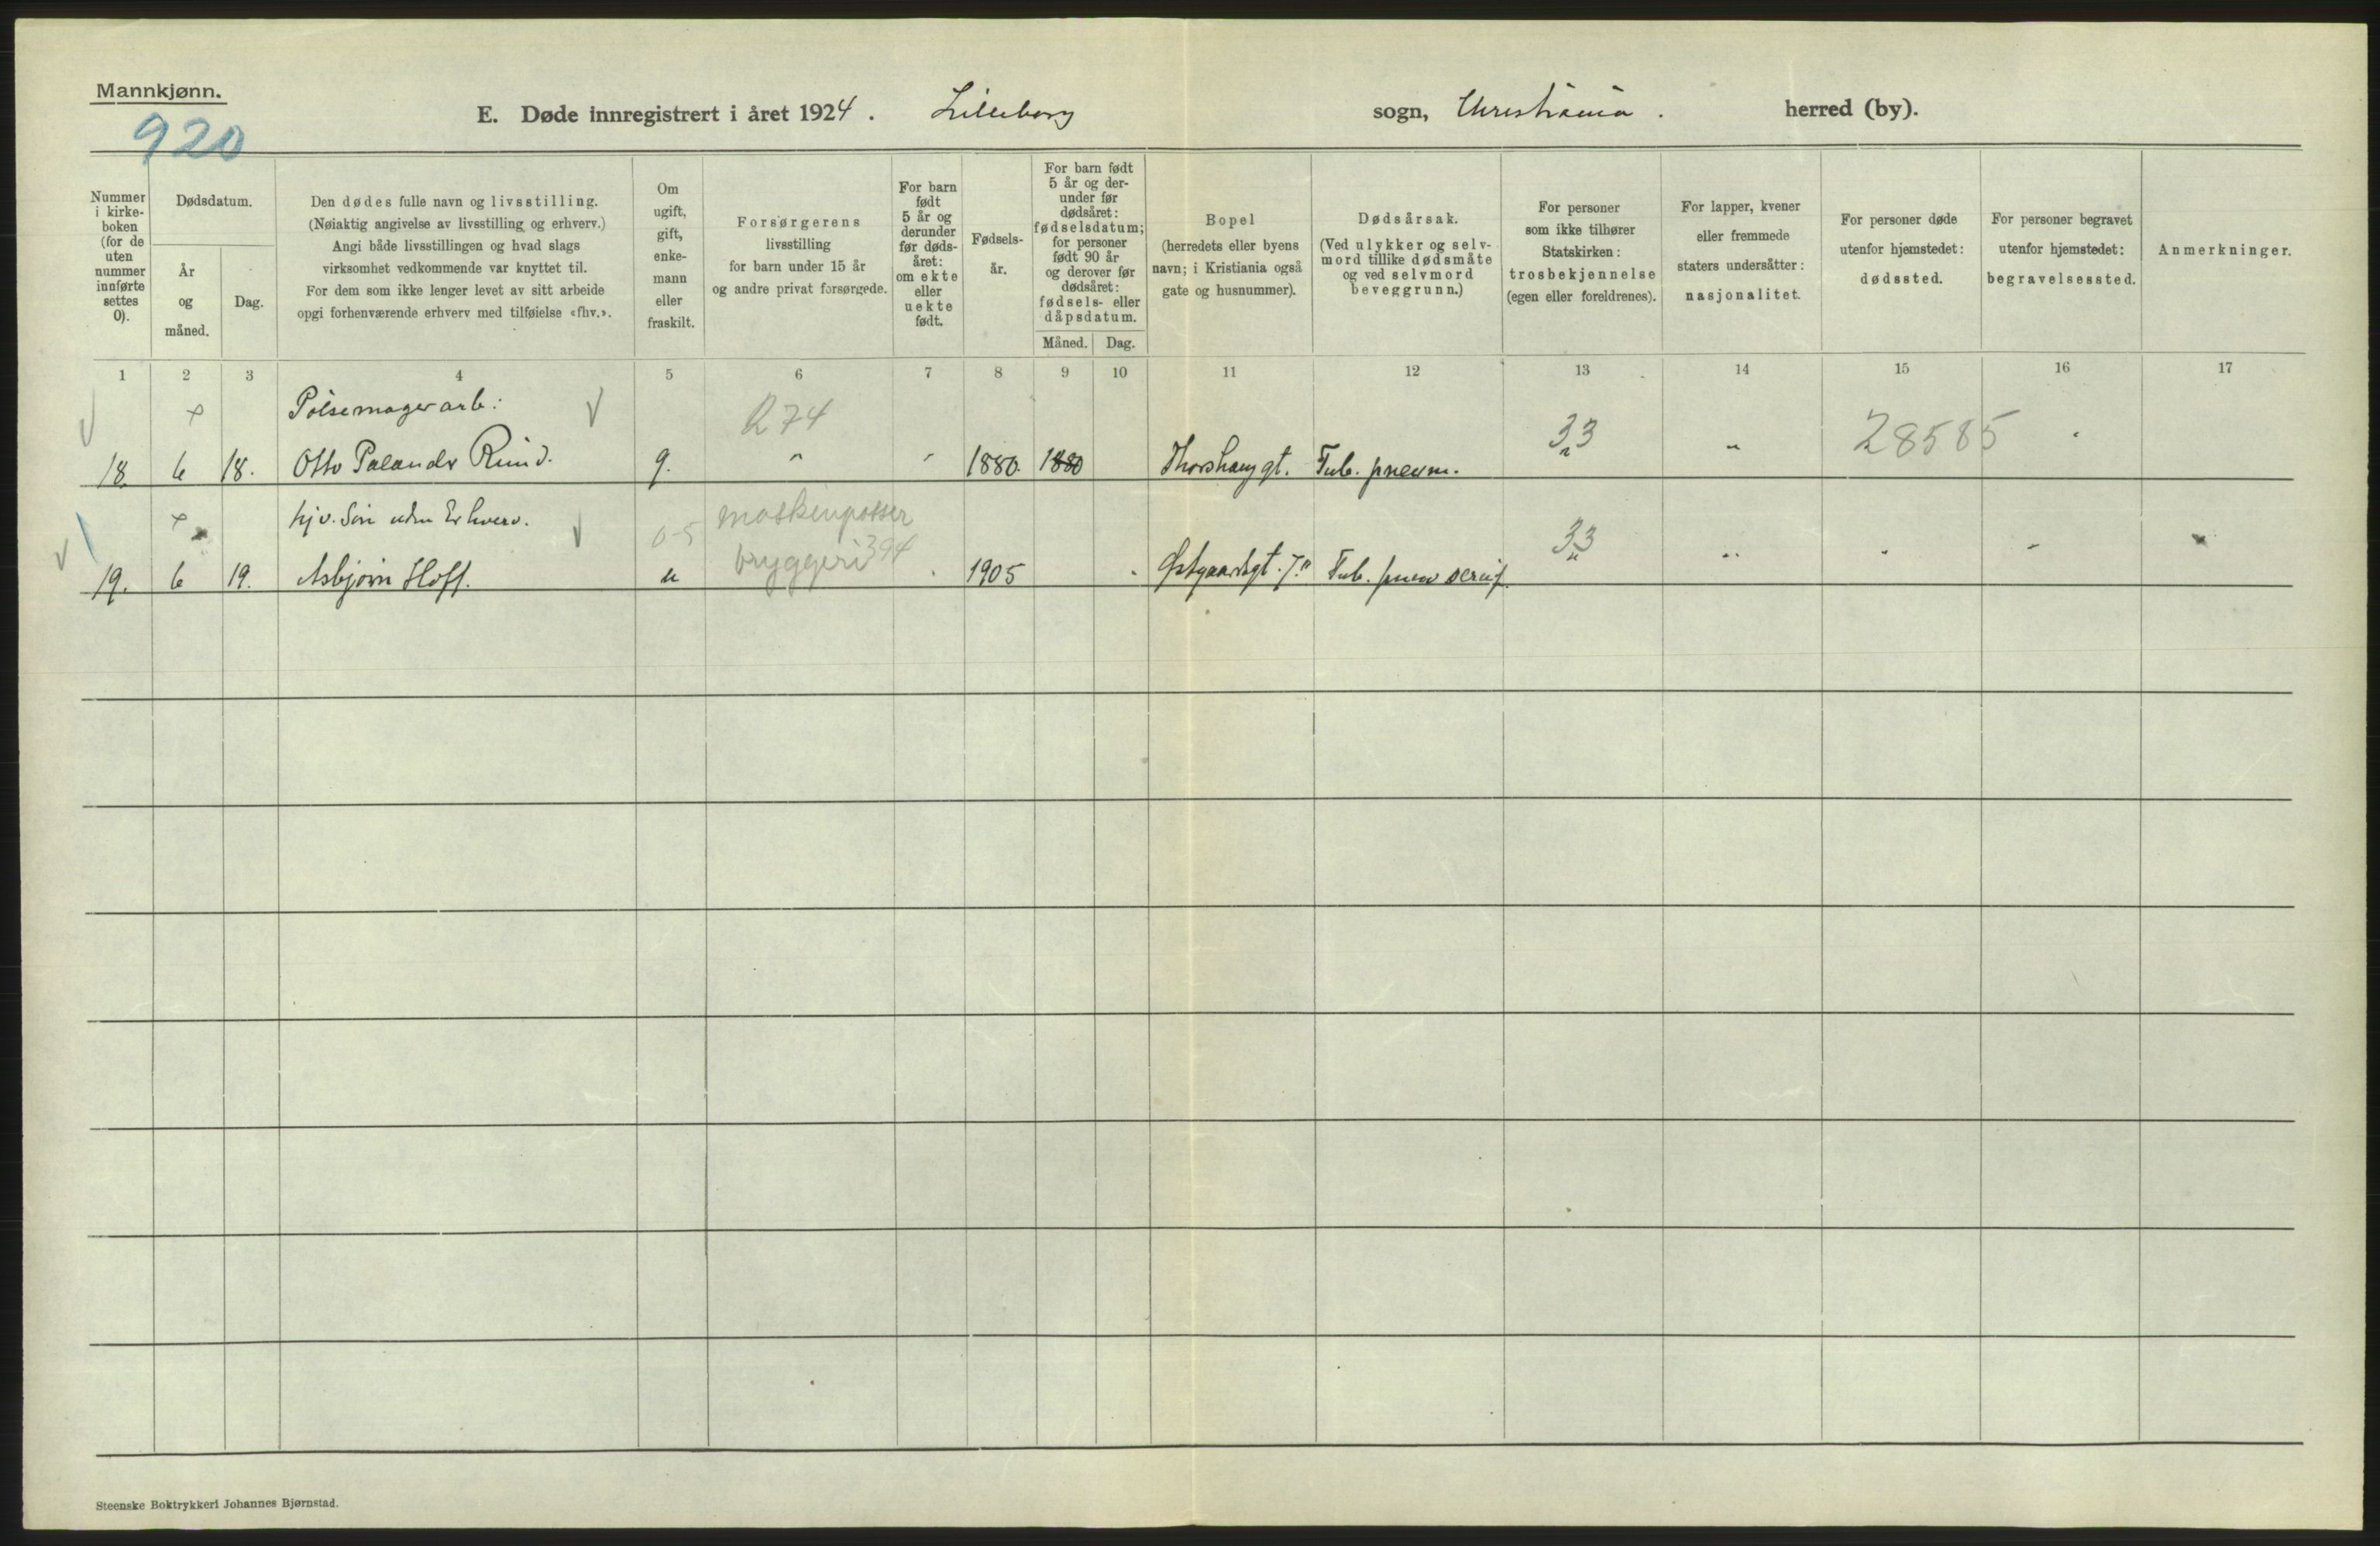 Mannkjønn.
920
E. Døde innregistrert i året 1924. Lilleborg sogn, Christiania. herred (by).
Nummer i kirke-boken (for de uten nummer innførte settes 0).
Dødsdatum.
År og måned.
Dag.
Den dødes fulle navn og livsstilling.
(Nøiaktig angivelse av livsstilling og erhverv.)
Angi både livsstillingen og hvad slags
virksomhet vedkommende var knyttet til.
For dem som ikke lenger levet av sitt arbeide
opgi forhenværende erhverv med tilføielse «fhv.».
Om ugift, gift, enke-mann eller fraskilt.
Forsørgerens
livsstilling
for barn under 15 år
og andre privat forsørgede.
For barn født 5 år og derunder før døds-året: om ekte eller uekte født.
Fødsels-år.
For barn født 5 år og der-under før dødsåret: fødselsdatum; for personer født 90 år og derover før dødsåret: fødsels- eller dåpsdatum.
Måned. Dag.
Bopel
(herredets eller byens
navn; i Kristiania også
gate og husnummer).
Dødsårsak.
(Ved ulykker og selv-
mord tillike dødsmåte
og ved selvmord
beveggrunn.)
For personer
som ikke tilhører
Statskirken:
trosbekjennelse
(egen eller foreldrenes).
For lapper, kvener
eller fremmede
staters undersåtter:
nasjonalitet.
For personer døde
utenfor hjemstedet:
dødssted.
For personer begravet
utenfor hjemstedet:
begravelsessted.
Anmerkninger.
1 2 3 4 5 6 7 8 9 10 11 12 13 14 15 16 17
Pølsemagerarb:
R 74 33 28585
18. 6 18. Otto Palander Rund. g. " " 1880. 1880 Thorshaug gt. Tub. pneum. " "
hjv. Søn uden Erhverv. 0-5 maskinpasser 33
bryggeri 394
19. 6 19. Asbjørn Hoff. u 1905 Østgaardsgt. 7" Tub. pneum " "
Steenske Boktrykkeri Johannes Bjørnstad.